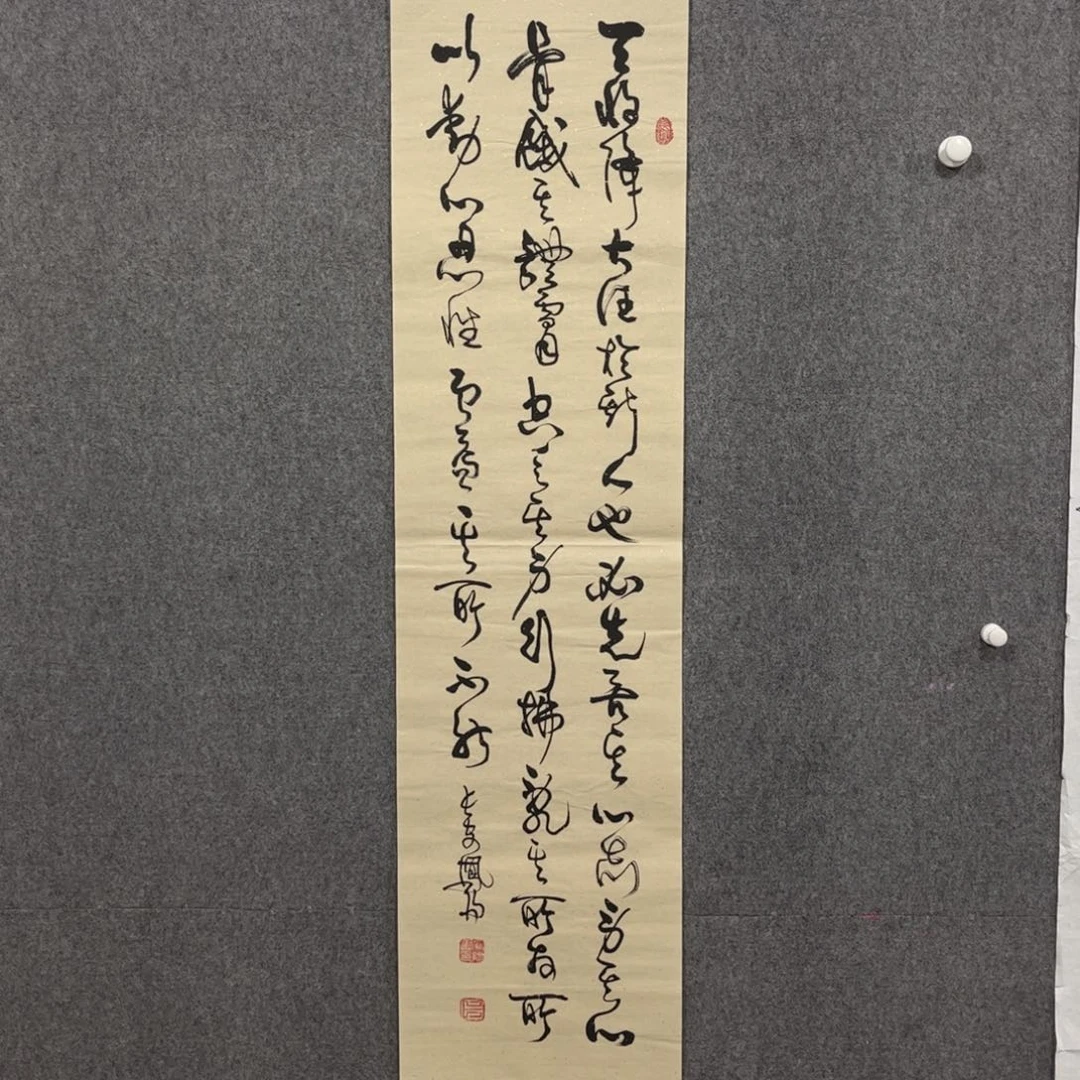 天將降大任於斯人也必先苦其心志勞其心
骨餓其體膚空乏其身行拂亂其所為所
以動心忍性曾益其所不能